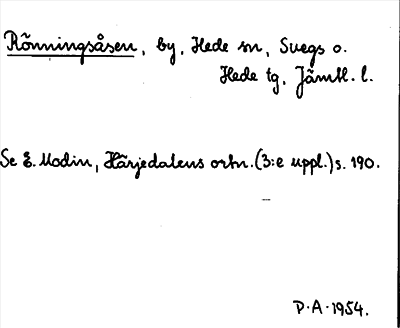 Rönningsåsen, by, Hede sn, Svegs o.
Hede tg, Jämtl. l.
Se E. Modin, Härjedalens ortn. (3:e uppl.) s. 190.
P.A. 1954.